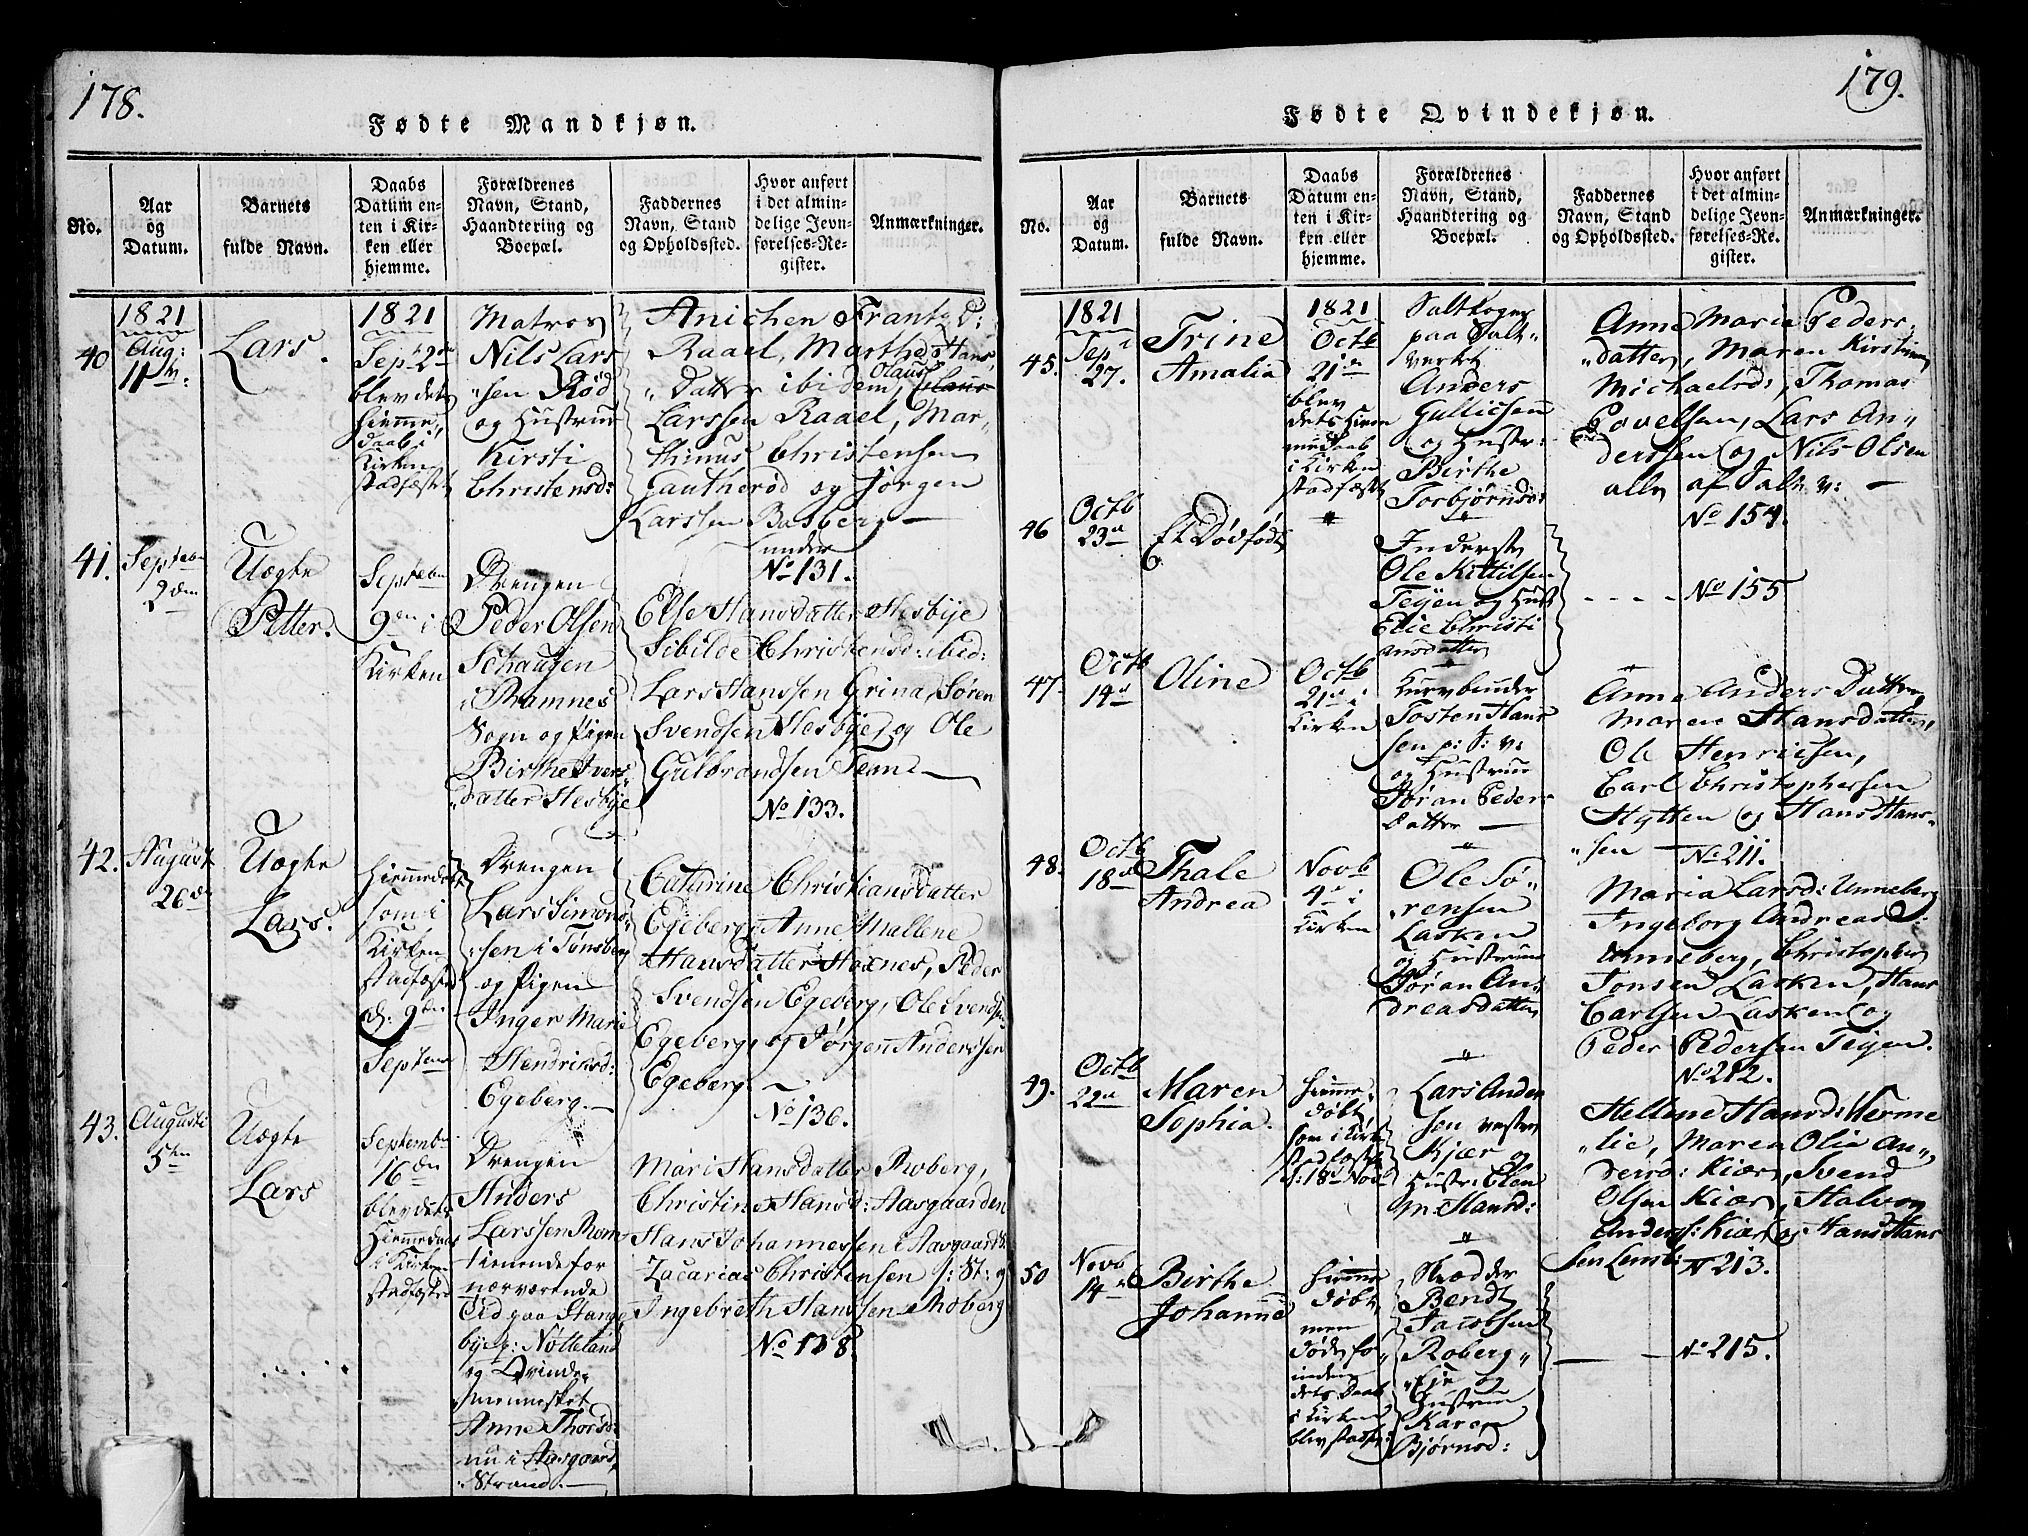 178.
Fødte Mandkjøn.
No.
Aar
og
Datum.
Barnets
fulde Navn.
Daabs
Datum en-
ten i Kir-
ken eller
hjemme.
Forældrenes
Navn, Stand,
Haandtering og
Boepæl.
Faddernes
Navn, Stand
og Opholdssted.
Hvor anført
i det almin-
delige Jevn-
førelses-Re-
gister.
Anmærkninger.
40
1821
Aug:
11
Lars.
1821
Sept 2den
blev dets
Hiemme-
daab i
Kirken
stadfæstet
Matros
Nils Lars
"sen Rød
og Hustrue
Kirsti
Christensd:
Anichen Frantz D:
Raael, Marthe Hans
"Datter ibidem, Olaus
Larssen Raael, Mar-
thinus Christensen
Gautherød og Jørgen
Larssen Basberg —
under
No 131.
41.
Septebr
2den
Uægte
Petter.
Septebr
9den i
Kirken
Drengen
Peder Olsen
Schaugen
i Ramnes
Sogn og Pigen
Birthe Ivers
"datter Hesbye
Else Hansdatter Hesbye
Sibilde Christensd: ibid:
Lars Hanssen Grina, Søren
Svendsen Hesbye, og Ole
Gulbrandsen Tean —
No 133.
42.
August
26de
Uægte
Lars.
Hiemmedøbt
som i
Kirken
stadfæstet
d: 9den
Septem
Drengen
Lars Simons
"sen i Tønsberg
og Pigen
Inger Marie
Hendrichsd:
Egeberg. —
Catarine Christiansdatter
Egeberg, Anne Mallene
Hansdatter Hoxnes, Peder
Svendsen Egeberg, Ole Svendsen
Egeberg, og Jørgen Anderssen
Egeberg. —
No 136.
43.
Augusti
5ten
Uægte
Lars
Septemb
16den
blev dets
Hiemmedaab
i Kirken
stadfæstet
Drengen
Anders
Larssen Rom
tienende for
nærværende
Tid paa Stange
bye p: Nøtteland
og Qvinde-
mennesket
Anne Thorsd:
nu i Aasgaard
Strand. —
Mari Hansdatter Roberg,
Christine Hansd: Aasgaarden
Hans Johannessen i Aasgaards
Zacarias Christensen /: St: og
Ingebreth Hanssen Roberg
No 138
179.
Fødte Qvindekjøn.
No.
Aar
og
Datum.
Barnets
fulde Navn.
Daabs
Datum en-
ten i Kir-
ken eller
hjemme.
Forældrenes
Navn, Stand,
Haandtering og
Boepæl.
Faddernes
Navn, Stand
og Opholdssted.
Hvor anført
i det almin-
delige Jevn-
førelses-Re-
gister.
Anmærkninger.
45.
1821
Sept
27.
Trine
Amalia
1821
Octb
21de
blev
dets Hiem
medaab
i Kirken
stadfæstet
Saltkoger
paa Salt-
verket
Anders
Gullicsen
og Hustr:
Birthe
Torbjørnsd:
Anne Maria Peders-
"datter, Maren Kirstina
Michaelsd:, Thomas
Povelsen, Lars An-
derssen og Nils Olsen
alle af Salt v: —
No 154.
46
Octb
23de
Et Dødfødt
"
Inderste
Ole Kittilsen
Teyen og Hust
Elie Christi
ansdatter
- - - - No 155
47.
Octb
14de
Oline
Octb
21de i
Kirken
Kurvbinder
Tosten Hans
sen p: S: v:
og Hustrue
Jøran Peders
Datter —
Anne Anders Datter,
Maren Hansdatter,
Ole Henricsen,
Carl Christophersen
Hytten og Hans Hans-
"sen — No 211.
48.
Octb
18de
Thale
Andrea
Novb
4de i
Kirken
Ole Sø-
rensen
Lasken
og Hustrue
Jøran An-
dreasdatter
Maria Larsd: Unneberg
Ingeborg Andreas D:
Unneberg, Christopher
Jonsen Lasken, Hans
Carlsen Lasken og
Peder Pedersen Teyen.
No 212.
49.
Octb
22de
Maren
Sophia.
Hiemme-
døbt,
som i Kirk
stadfæstet
d: 18de Novb
Lars Ander
sen vestre
Kjær og
Hustr: Elen
M: Hansd:
Hellene Hansd: Verme
"lie, Maren Olia An-
dersd: Kiær, Svend
Olsen Kiær, Halvor
Anders: Kiær og Hans Hans
sen Lensb: N 213.
50
Novb
14de
Birthe
Johanne
Hiemme
døbt,
men
døde fo-
inden
dets Daab
i Kirken
blev stadf:
Skrædder
Bendt
Jacobsen
Roberg-
"Eje og
Hustrue
Karen
Bjørnsd:
— — No 215.